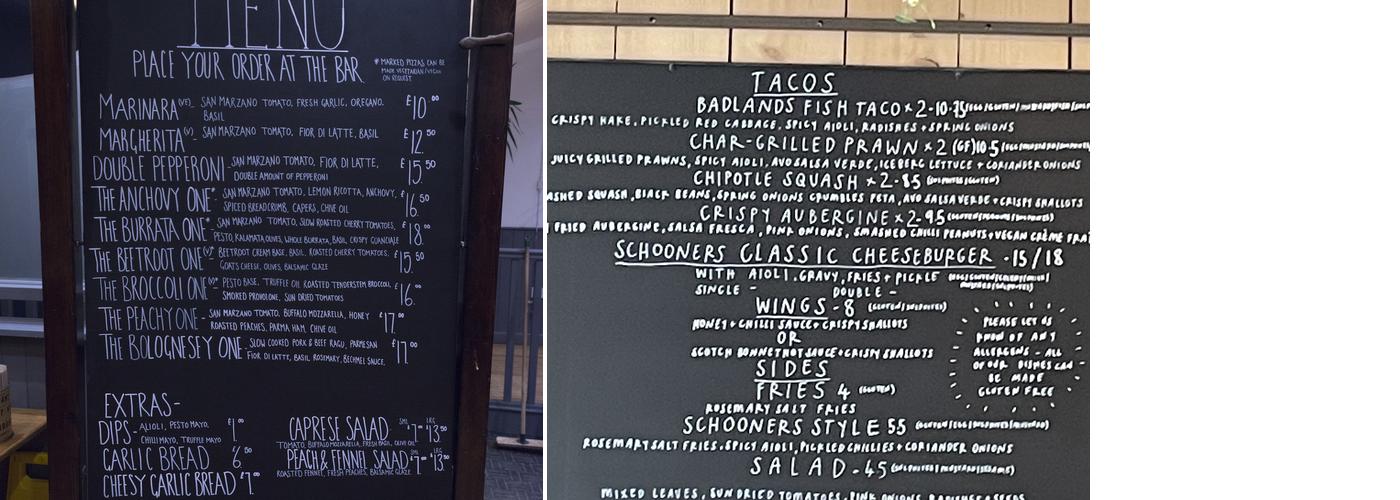 MENU
PLACE YOUR ORDER AT THE BAR
* MARKED PIZZAS CAN BE
MADE VEGETARIAN/VEGAN
ON REQUEST
MARINARA (VE) - SAN MARZANO TOMATO, FRESH GARLIC, OREGANO, £10.00
BASIL
MARGHERITA (V) - SAN MARZANO TOMATO, FIOR DI LATTE, BASIL £12.50
DOUBLE PEPPERONI - SAN MARZANO TOMATO, FIOR DI LATTE, £15.50
DOUBLE AMOUNT OF PEPPERONI
THE ANCHOVY ONE* - SAN MARZANO TOMATO, LEMON RICOTTA, ANCHOVY, £16.50
SPICED BREADCRUMB, CAPERS, CHIVE OIL
THE BURRATA ONE* - SAN MARZANO TOMATO, SLOW ROASTED CHERRY TOMATOES, £18.00
PESTO, KALAMATA OLIVES, WHOLE BURRATA, BASIL, CRISPY GUANCIALE
THE BEETROOT ONE (V)* - BEETROOT CREAM BASE, BASIL, ROASTED CHERRY TOMATOES, £15.50
GOATS CHEESE, OLIVES, BALSAMIC GLAZE
THE BROCCOLI ONE (V)* - PESTO BASE, TRUFFLE OIL ROASTED TENDERSTEM BROCCOLI, £16.00
SMOKED PROVOLONE, SUN DRIED TOMATOES
THE PEACHY ONE - SAN MARZANO TOMATO, BUFFALO MOZZARELLA, HONEY £17.00
ROASTED PEACHES, PARMA HAM, CHIVE OIL
THE BOLOGNESEY ONE - SLOW COOKED PORK & BEEF RAGU, PARMESAN £17.00
FIOR DI LATTE, BASIL, ROSEMARY, BECHMEL SAUCE.
EXTRAS-
DIPS - AIOLI, PESTO MAYO, £1.00
CHILLI MAYO, TRUFFLE MAYO
GARLIC BREAD £6.50
CHEESY GARLIC BREAD £7.00
CAPRESE SALAD - SML £7.00 LRG £13.50
TOMATO, BUFFALO MOZZARELLA, FRESH BASIL, OLIVE OIL
PEACH & FENNEL SALAD - SML £7.00 LRG £13.50
ROASTED FENNEL, FRESH PEACHES, BALSAMIC GLAZE
TACOS
BADLANDS FISH TACO x 2 - 10.75
CRISPY HAKE, PICKLED RED CABBAGE, SPICY AIOLI, RADISHES + SPRING ONIONS
CHAR-GRILLED PRAWN x 2 (GF) 10.5
JUICY GRILLED PRAWNS, SPICY AIOLI, AVO SALSA VERDE, ICEBERG LETTUCE + CORIANDER ONIONS
CHIPOTLE SQUASH x 2 - 8.5 (SULPHITES/GLUTEN)
SQUASH, BLACK BEANS, SPRING ONIONS CRUMBLES FETA, AVO SALSA VERDE + CRISPY SHALLOTS
CRISPY AUBERGINE x 2 - 9.5
FRIED AUBERGINE, SALSA FRESCA, PINK ONIONS, SMASHED CHILLI PEANUTS + VEGAN CRÈME
SCHOONERS CLASSIC CHEESEBURGER - 15/18
WITH AIOLI, GRAVY, FRIES + PICKLE
SINGLE - DOUBLE -
WINGS - 8 (GLUTEN/SULPHITES)
HONEY + CHILLI SAUCE + CRISPY SHALLOTS
OR
SCOTCH BONNET HOT SAUCE + CRISPY SHALLOTS
PLEASE LET US
KNOW OF ANY
ALLERGENS - ALL
OF OUR DISHES CAN
BE MADE
GLUTEN FREE
SIDES
FRIES 4 (GLUTEN)
ROSEMARY SALT FRIES
SCHOONERS STYLE 5.5
ROSEMARY SALT FRIES, SPICY AIOLI, PICKLED CHILLIES + CORIANDER ONIONS
SALAD - 4.5 (SULPHITES/MUSTARD/SESAME)
MIXED LEAVES, SUN DRIED TOMATOES, PINK ONIONS, RADISHES + SEEDS